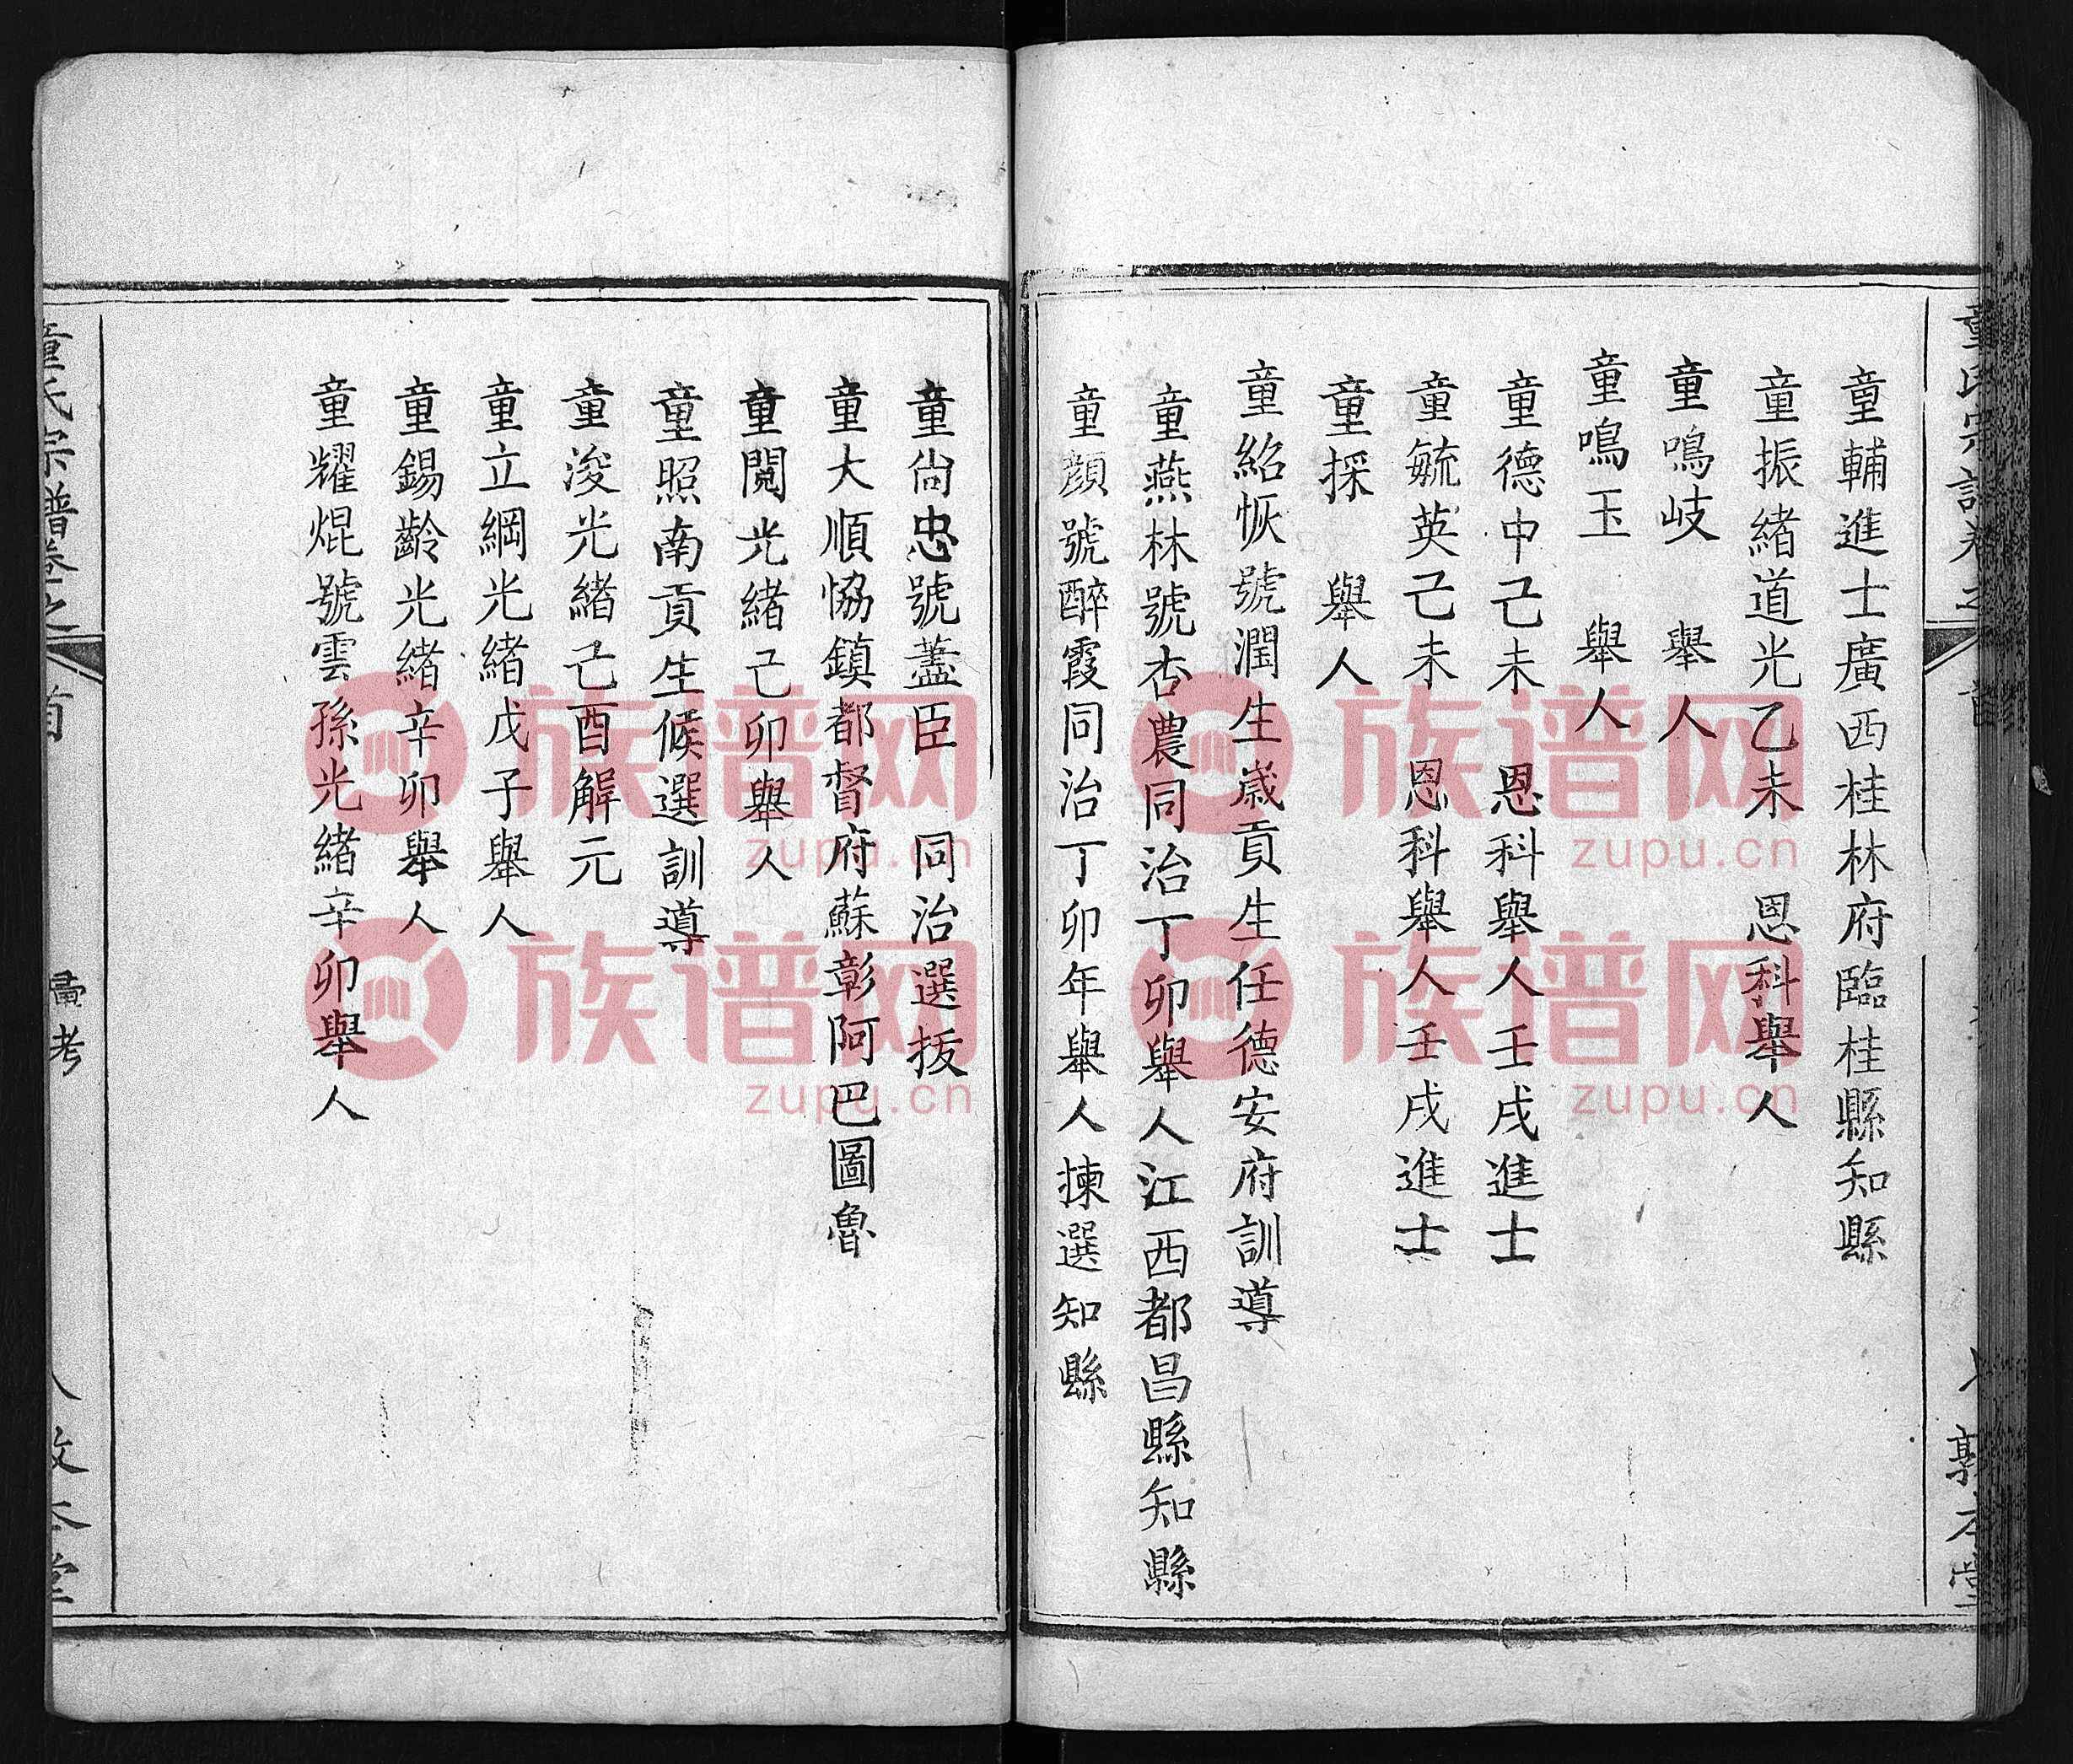 童輔進士廣西桂林府臨桂縣知縣
童振緒道光乙未　恩科舉人
童鳴岐　舉人
童鳴玉　舉人
童德中己未　恩科舉人壬戌進士
童毓英己未　恩科舉人壬戌進士
童採　舉人
童紹恢號潤生歲貢生任德安府訓導
童燕林號杏農同治丁卯舉人江西都昌縣知縣
童顏號醉霞同治丁卯年舉人揀選知縣
童尙忠號藎臣　同治選拔
童大順協鎮都督府蘇彰阿巴圖魯
童閱光緒己卯舉人
童照南貢生候選訓導
童浚光緒己酉解元
童立綱光緒戊子舉人
童錫齡光緒辛卯舉人
童耀焜號雲孫光緒辛卯舉人
童氏宗譜卷之首
彙考
族谱网
zupu.cn
族谱网
zupu.cn
族谱网
zupu.cn
族谱网
zupu.cn